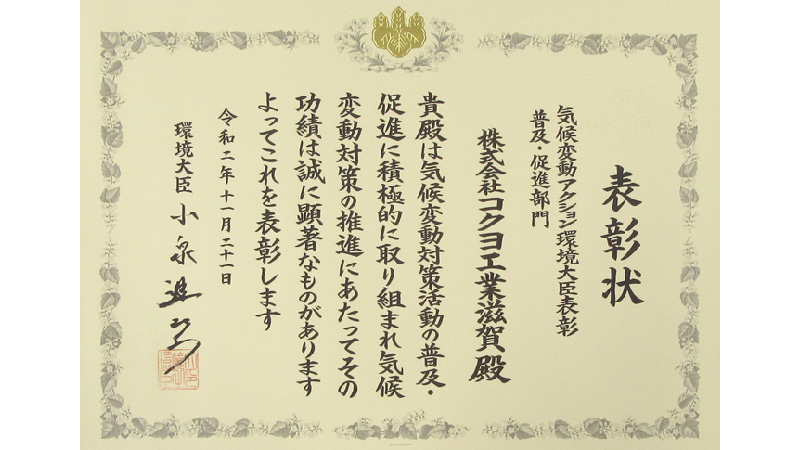 表彰状
気候変動アクション環境大臣表彰
普及・促進部門
株式会社コクヨ工業滋賀 殿
貴殿は気候変動対策活動の普及・
促進に積極的に取り組まれ気候
変動対策の推進にあたってその
功績は誠に顕著なものがあります
よってこれを表彰します
令和二年十一月二十一日
環境大臣 小泉進次郎